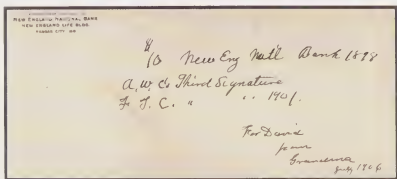 New England National Bank
New England Life Bldg.
Kansas City Mo
$10 New Eng Nat'l Bank 1898
A. W. C's Third Signature
F. T. C. " " .. 1901.
For David
from
Grandma
July 1906